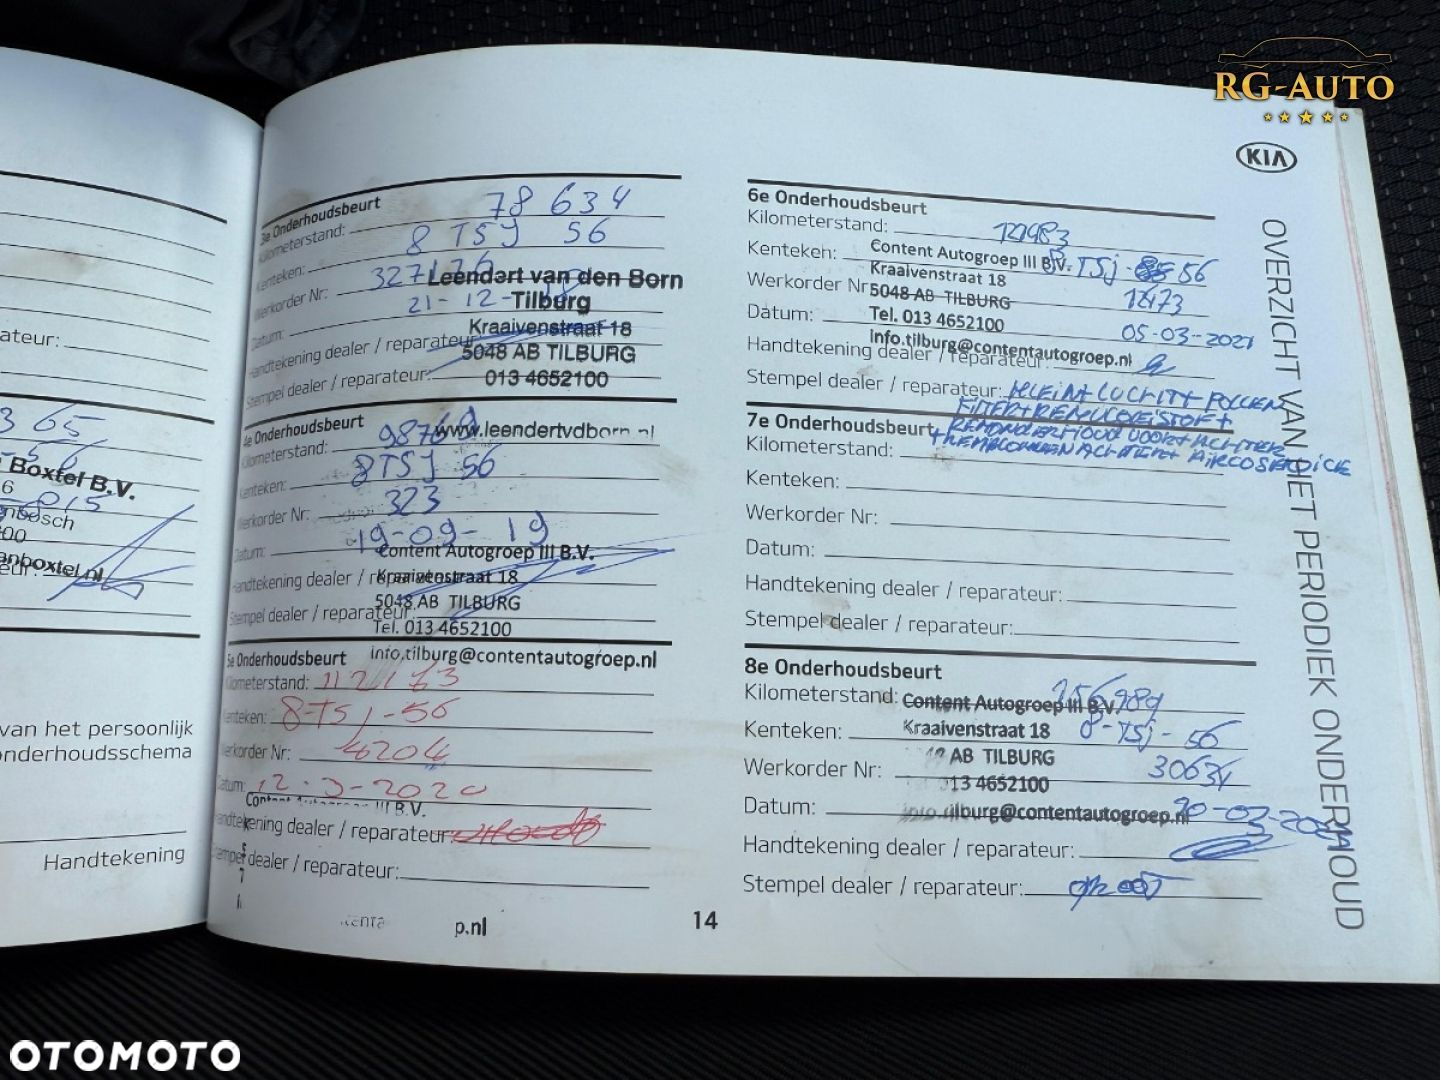 RG-AUTO
KIA
OVERZICHT VAN HET PERIODIEK ONDERHOUD
ateur:
365
-56
Boxtel B.V.
6
015
nbosch
00
anboxtel.nl
eur:
van het persoonlijk
onderhoudsschema
Handtekening
3e Onderhoudsbeurt
Kilometerstand: 78 634
Kenteken: 8 TSJ 56
Werkorder Nr: 327126
Datum: 21-12-
Handtekening dealer / reparateur:
Stempel dealer / reparateur:
Leendert van den Born
Tilburg
Kraaivenstraat 18
5048 AB TILBURG
013 4652100
www.leendertvdborn.nl
4e Onderhoudsbeurt
Kilometerstand: 98769
Kenteken: 8TSJ 56
Werkorder Nr: 323
Datum: 19-09-19
Handtekening dealer / reparateur:
Stempel dealer / reparateur:
Content Autogroep III B.V.
Kraaivenstraat 18
5048 AB TILBURG
Tel. 013 4652100
info.tilburg@contentautogroep.nl
5e Onderhoudsbeurt
Kilometerstand: 112163
Kenteken: 8-TSJ-56
Werkorder Nr: 4204
Datum: 12-3-2020
Handtekening dealer / reparateur:
Stempel dealer / reparateur:
III B.V.
p.nl
14
6e Onderhoudsbeurt
Kilometerstand: 121983
Kenteken: 8-TSJ-56
Werkorder Nr: 1273
Datum: 05-03-2021
Handtekening dealer / reparateur:
Stempel dealer / reparateur: KLEIN+LUCHT+POLLEN
FILTER+REMVLOEISTOF+
REMONDERHOUD VOOR+ACHTER
Content Autogroep III B.V.
Kraaivenstraat 18
5048 AB TILBURG
Tel. 013 4652100
info.tilburg@contentautogroep.nl
7e Onderhoudsbeurt
Kilometerstand:
Kenteken:
Werkorder Nr:
Datum:
Handtekening dealer / reparateur:
Stempel dealer / reparateur:
8e Onderhoudsbeurt
Kilometerstand: 156989
Kenteken: 8-TSJ-56
Werkorder Nr: 30631
Datum:
Handtekening dealer / reparateur:
Stempel dealer / reparateur:
Content Autogroep III B.V.
Kraaivenstraat 18
AB TILBURG
013 4652100
info.tilburg@contentautogroep.nl
OTOMOTO